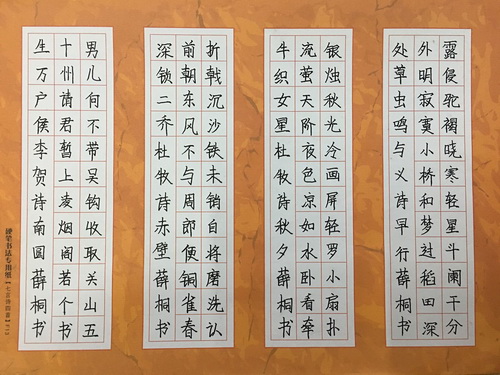 露侵驼褐晓寒轻星斗阑干分
外明寂寞小桥和梦过稻田深
处草虫鸣与义诗早行薛桐书
银烛秋光冷画屏轻罗小扇扑
流萤天阶夜色凉如水卧看牵
牛织女星杜牧诗秋夕薛桐书
折戟沉沙铁未销自将磨洗认
前朝东风不与周郎便铜雀春
深锁二乔杜牧诗赤壁薛桐书
男儿何不带吴钩收取关山五
十州请君暂上凌烟阁若个书
生万户侯李贺诗南圆薛桐书
硬笔书法专用纸